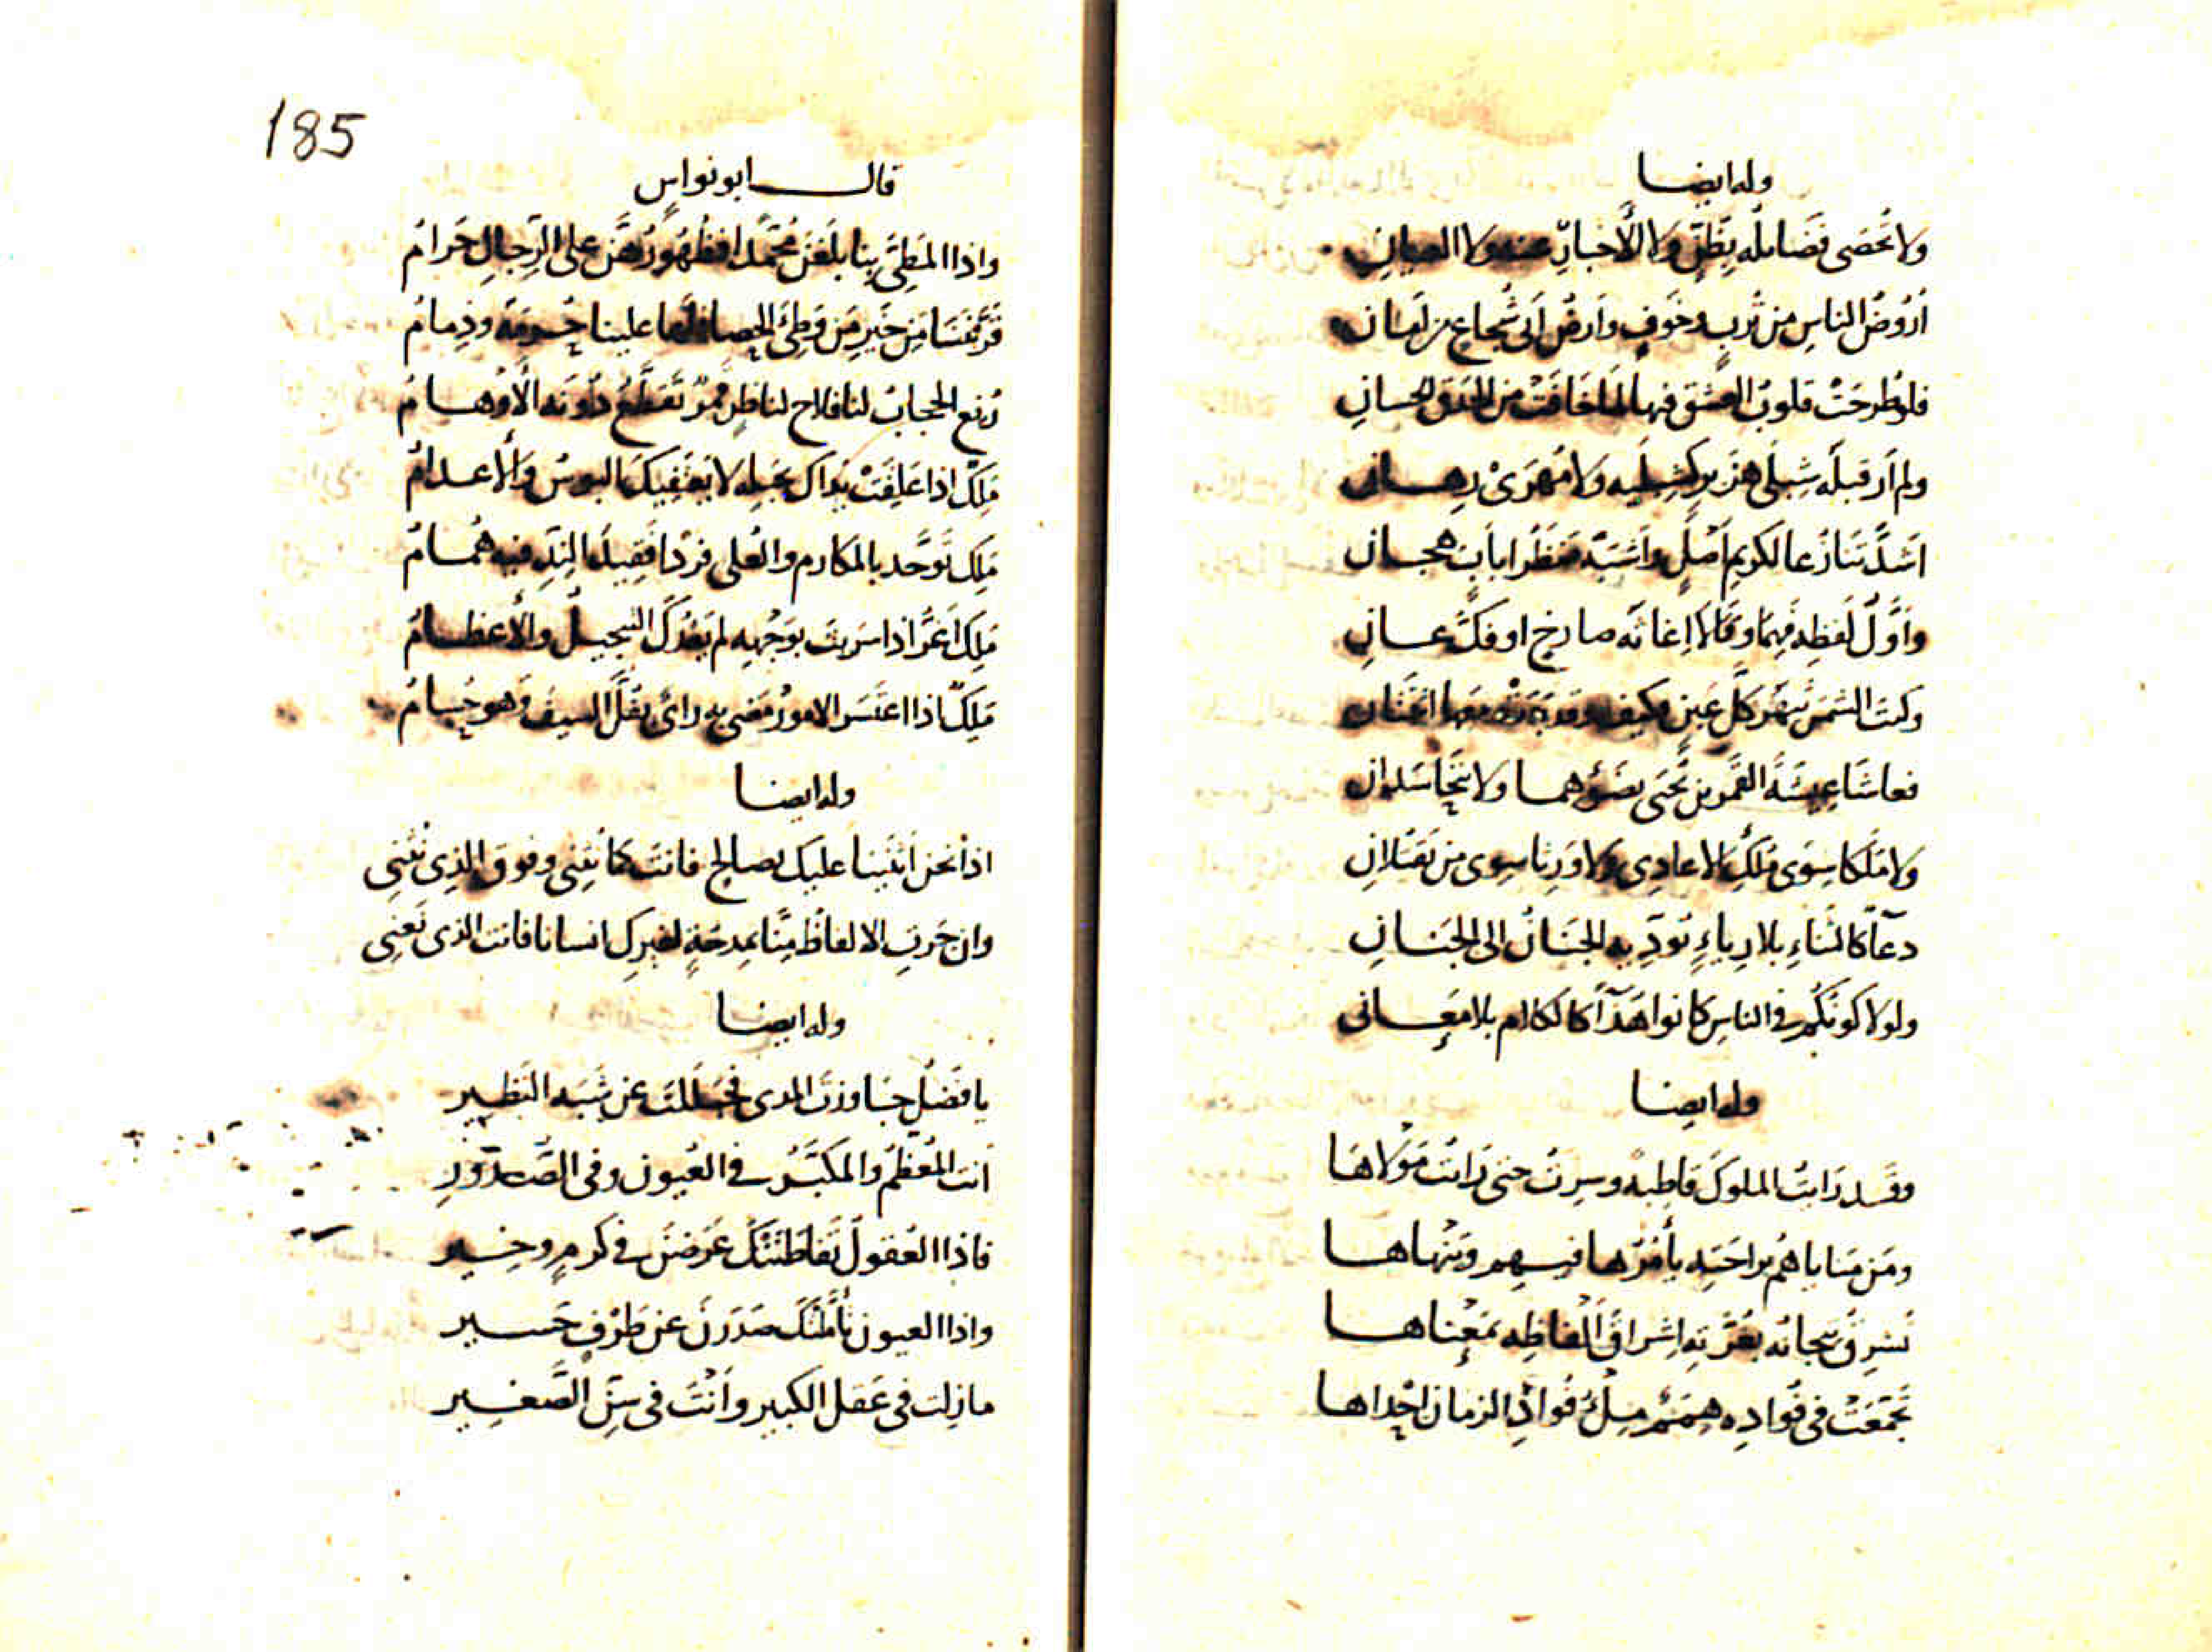 وله ايضا
ولا تُحصَى فَضَائله بِظَنٍّ ولا الأَخبارِ عنه ولا العيانِ
أرُوضُ الناسِ من تُربٍ وخَوفٍ وَأرضُ أَبى شُجاعٍ من أَمانِ
فلو طُرحَتْ قلوبُ العشق فيها لما خَافَتْ من الحَدق الحسانِ
ولم أرَ قبلَه شِبلَى هزَبرٍ كشِبلَيه وَلا مُهرَىْ رِهانِ
اشدَّ تنَازُعا لكريمِ أَصْلٍ وَاَشبَهَ مَنظَرا بأَبٍ هجانِ
وأوَّلُ لَفظِه فَهِمَا وقالا اِغاثَه صارخٍ او فكُّ عانِ
وكنتَ الشمسَ تبهَر كلَّ عَينٍ وكيف وقد بَدَتْ معها اثنَتانِ
فعاشَا عِيشَهَ القمَرين يُحيَى بضَوئهما ولا يتحَاسَدانِ
ولا مَلَكا سِوَى مُلكِ الاعادِى ولا وَرِثا سِوى من يَقتُلانِ
دعآٌ كالثناءِ بلا رياءٍ تودّيه الجَنانُ الى الجَنانِ
ولولا كونكُم فى الناس كانوا هُذآً كالكلام بلا مَعانى
وله ايضا
وقد رَايتُ الملوكَ قاطِبهً وسِرتُ حتى رَاَيتُ مَوْلاهَا
ومَن مَنَاياهُم براحَتِه يأمُرُها فيهم ويَنهاها
تُشرِق تيجانُه بغُرَّتِه اِشراقَ اَلْفاظِه بمَعْناها
تجَمَّعَتْ فى فُوادِه هِمَمٌ مِلْءُ فُوادِ الزمان اِحْداها
185
قال ابو نواس
واذا المَطىَّ بِنا بلَغنَ محَمَّدا فظُهُورُهُنَّ على الرِجالِ حَرامُ
قَرَّبْنَنَا مِن خَيرِ مَن وَطِئَ الحِصا فلها علينا حُرمَة وذِمامُ
رُفع الحجابُ لنا فلاح لناظِرٍ قمَرٌ تَقَطَّعُ دُونَه الأَوْهامُ
مَلِكٌ اذا عَلِقَتْ يَداك بحَبلِه لا يَعتفيكَ البوسُ وَالأعدامُ
مَلِك تَوَحَّد بالمَكارم والعُلى فردا فقِيدُ النِدِّ فيه هُمامُ
مَلِك اَغَرُّ اذا سَريتَ بوَجْهِه لم يَعْدُكَ التبجيلُ والأعظامُ
مَلِكٌ اذا اعتَسَر الامورُ مَضى به رائٌ يفُلُّ السيفَ وَهو حُسامُ
وله ايضا
اذا نحن اَثنَينا عليك بصالحٍ فانت كما نثنِى وفوق الذِى نُثنِى
وان جَرتِ الالفاظُ مِنَّا بمِدحَةٍ لغيرِكِ انسانا فانت الذى نَعنِى
وله ايضا
يا فَضْلُ جَاوزتَ المدى فجَلَلتَ عن شَبَه النَظِير
اَنت المُعظَّم والمكبَّرُ فى العُيون وفى الصُّدُورِ
فاذا العُقولُ تَفاطَنتْكَ عَرضْنَ فى كرمٍ وخِيرِ
واذا العيون تأمَّلْتَكَ صَدَرنَ عن طَرْفٍ حَسير
مازلتَ فى عَقل الكبير وأنْتَ فى سِنِّ الصَّغِير